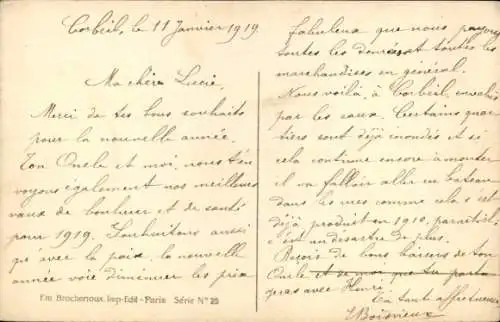 Corbeil, le 11 Janvier 1919.
Ma chère Lucie,
Merci de tes bons souhaits
pour la nouvelle année.
Ton Oncle et moi, nous t'en
voyons également nos meilleurs
vœux de bonheur et de santé
pour 1919. Souhaitons aussi
qu'avec la paix, la nouvelle
année voie diminuer les prix
Em Brocherioux. Imp-Edit - Paris Série N° 25
fabuleux que nous payons
toutes les denrées et toutes les
marchandises en général.
Nous voilà, à Corbeil, envahis
par les eaux. Certains quar
tiers sont déjà inondés et si
cela continue encore à monter
il va falloir aller en bateau
dans les rues comme cela s'est
déjà produit en 1910, paraît-il,
c'est un désastre de plus.
Reçois de bons baisers de ton
Oncle et de moi que tu parta
geras avec Henri.
Ta tante affectueuse
Boisvieux